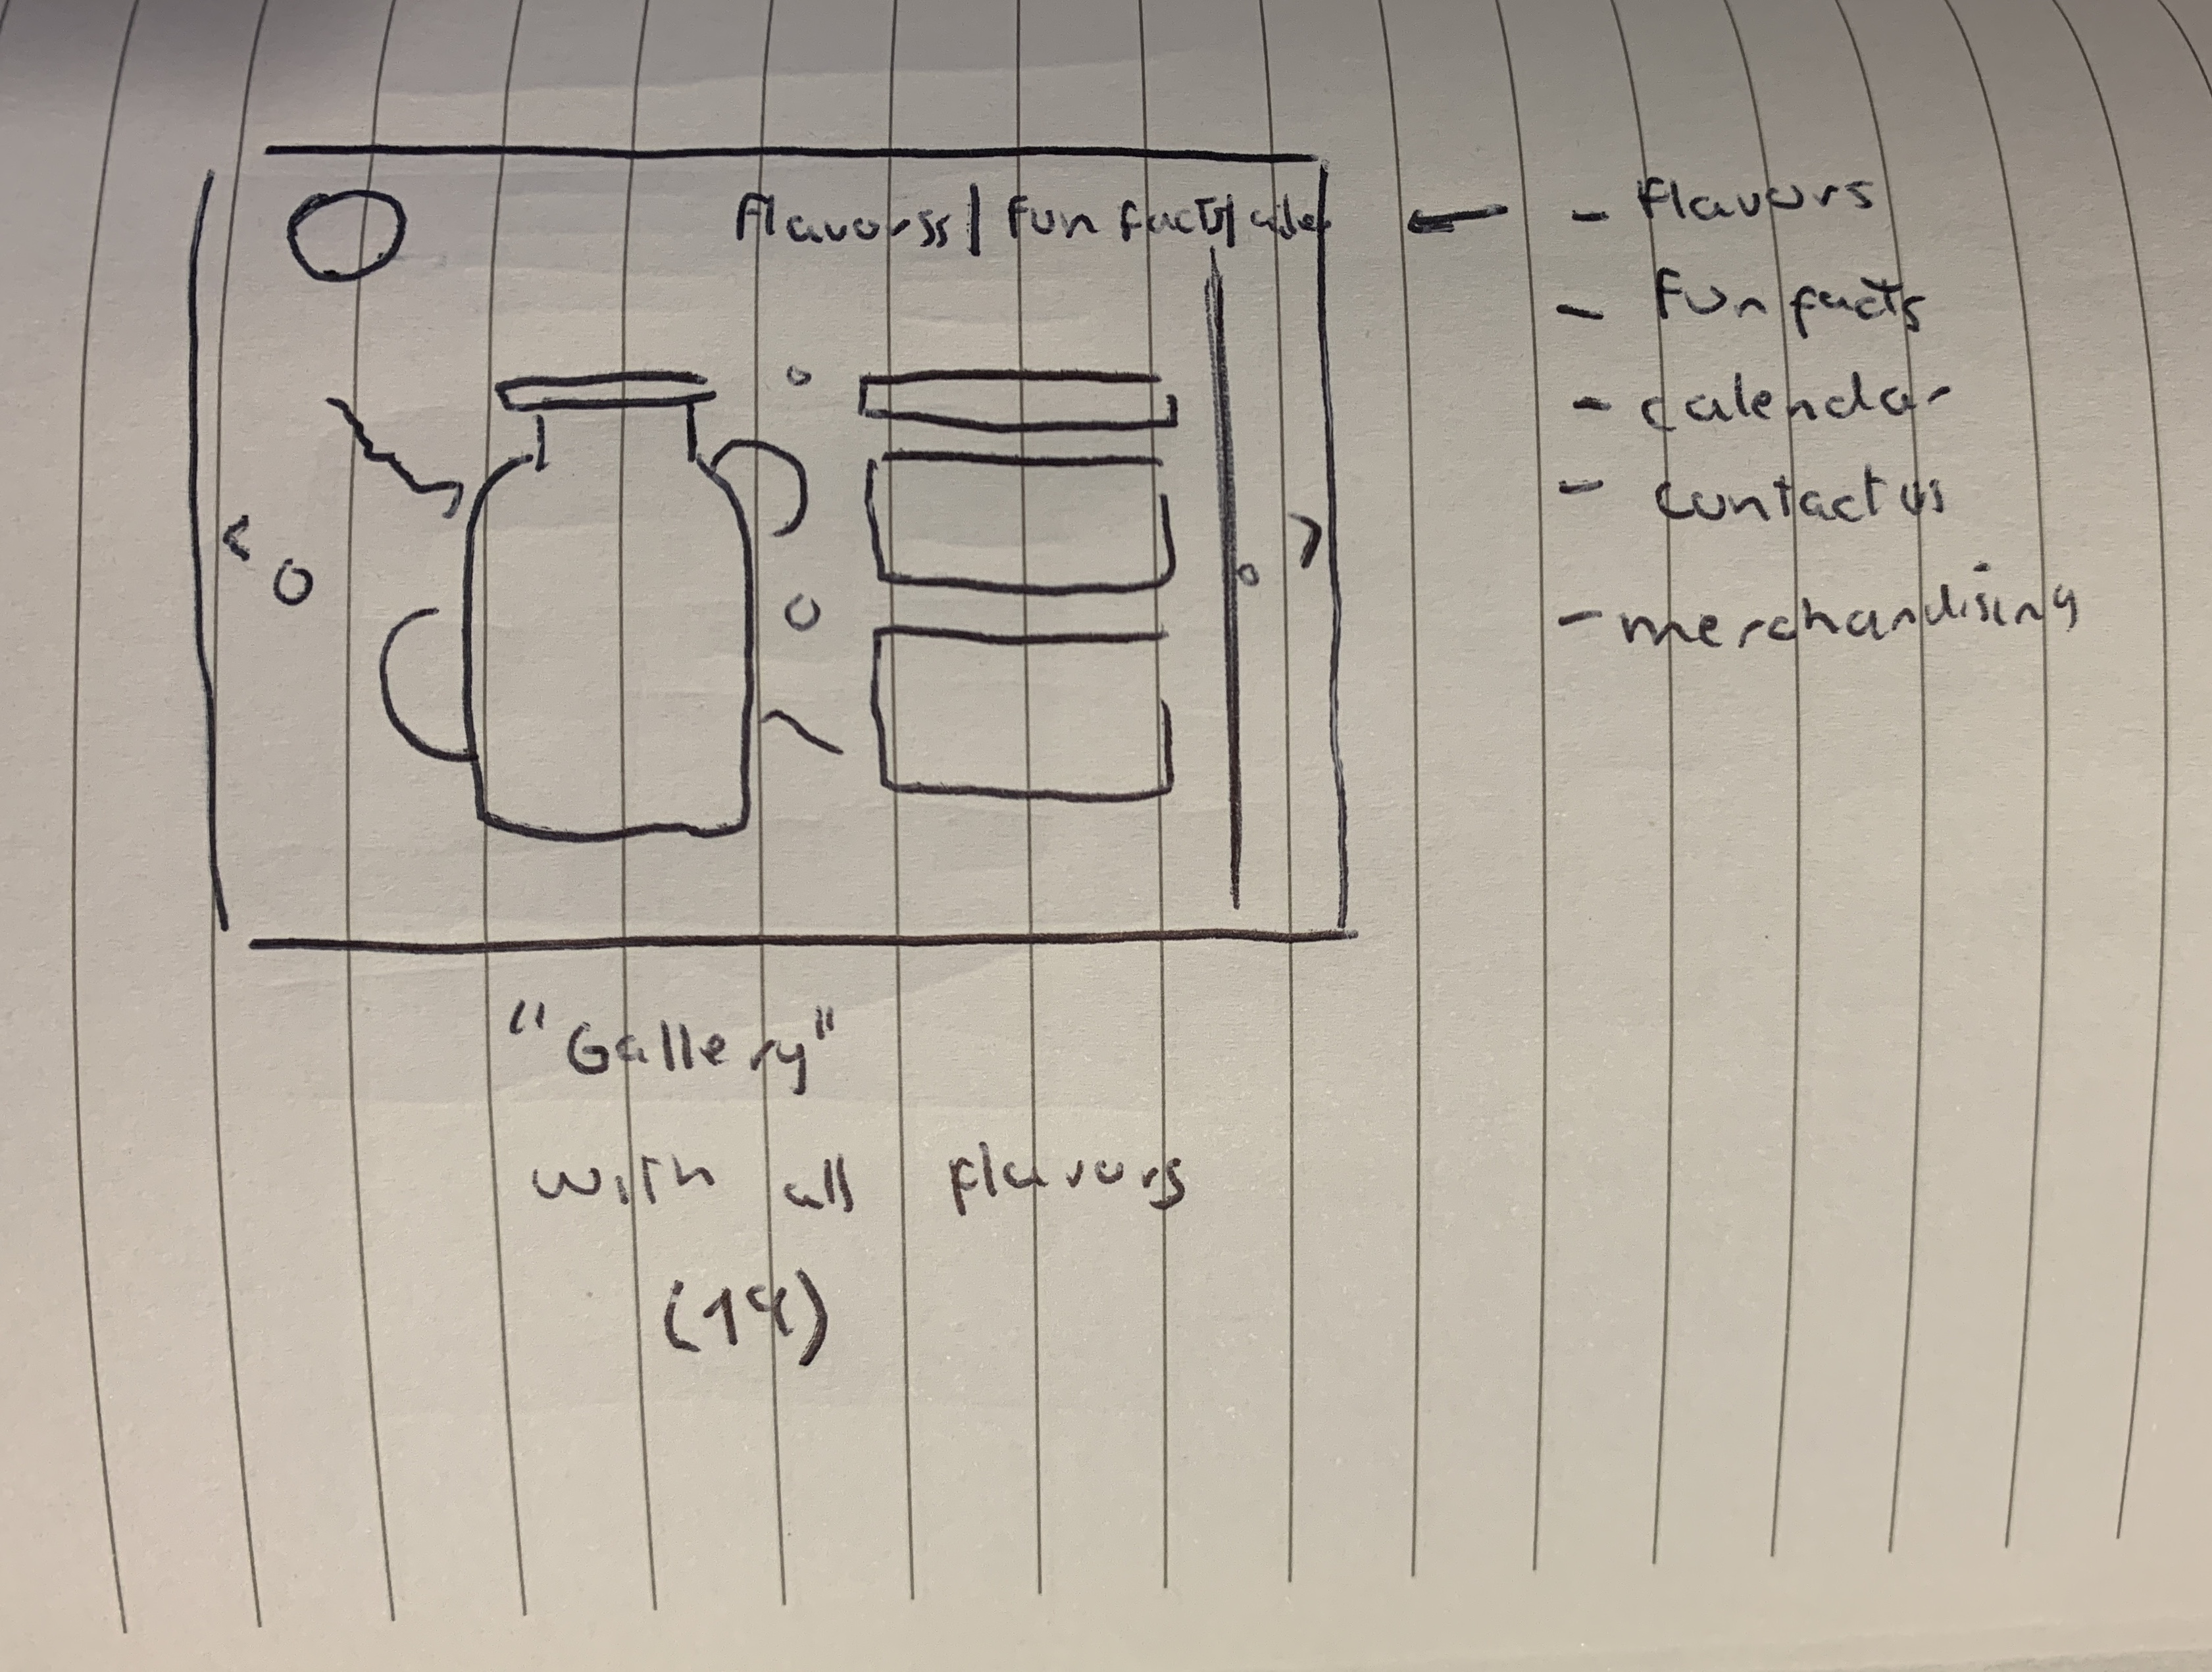 Flavorss | Fun facts |
- Flavors
- Fun facts
- calendar
- contact us
- merchandising
"Gallery"
with all flavors
(14)